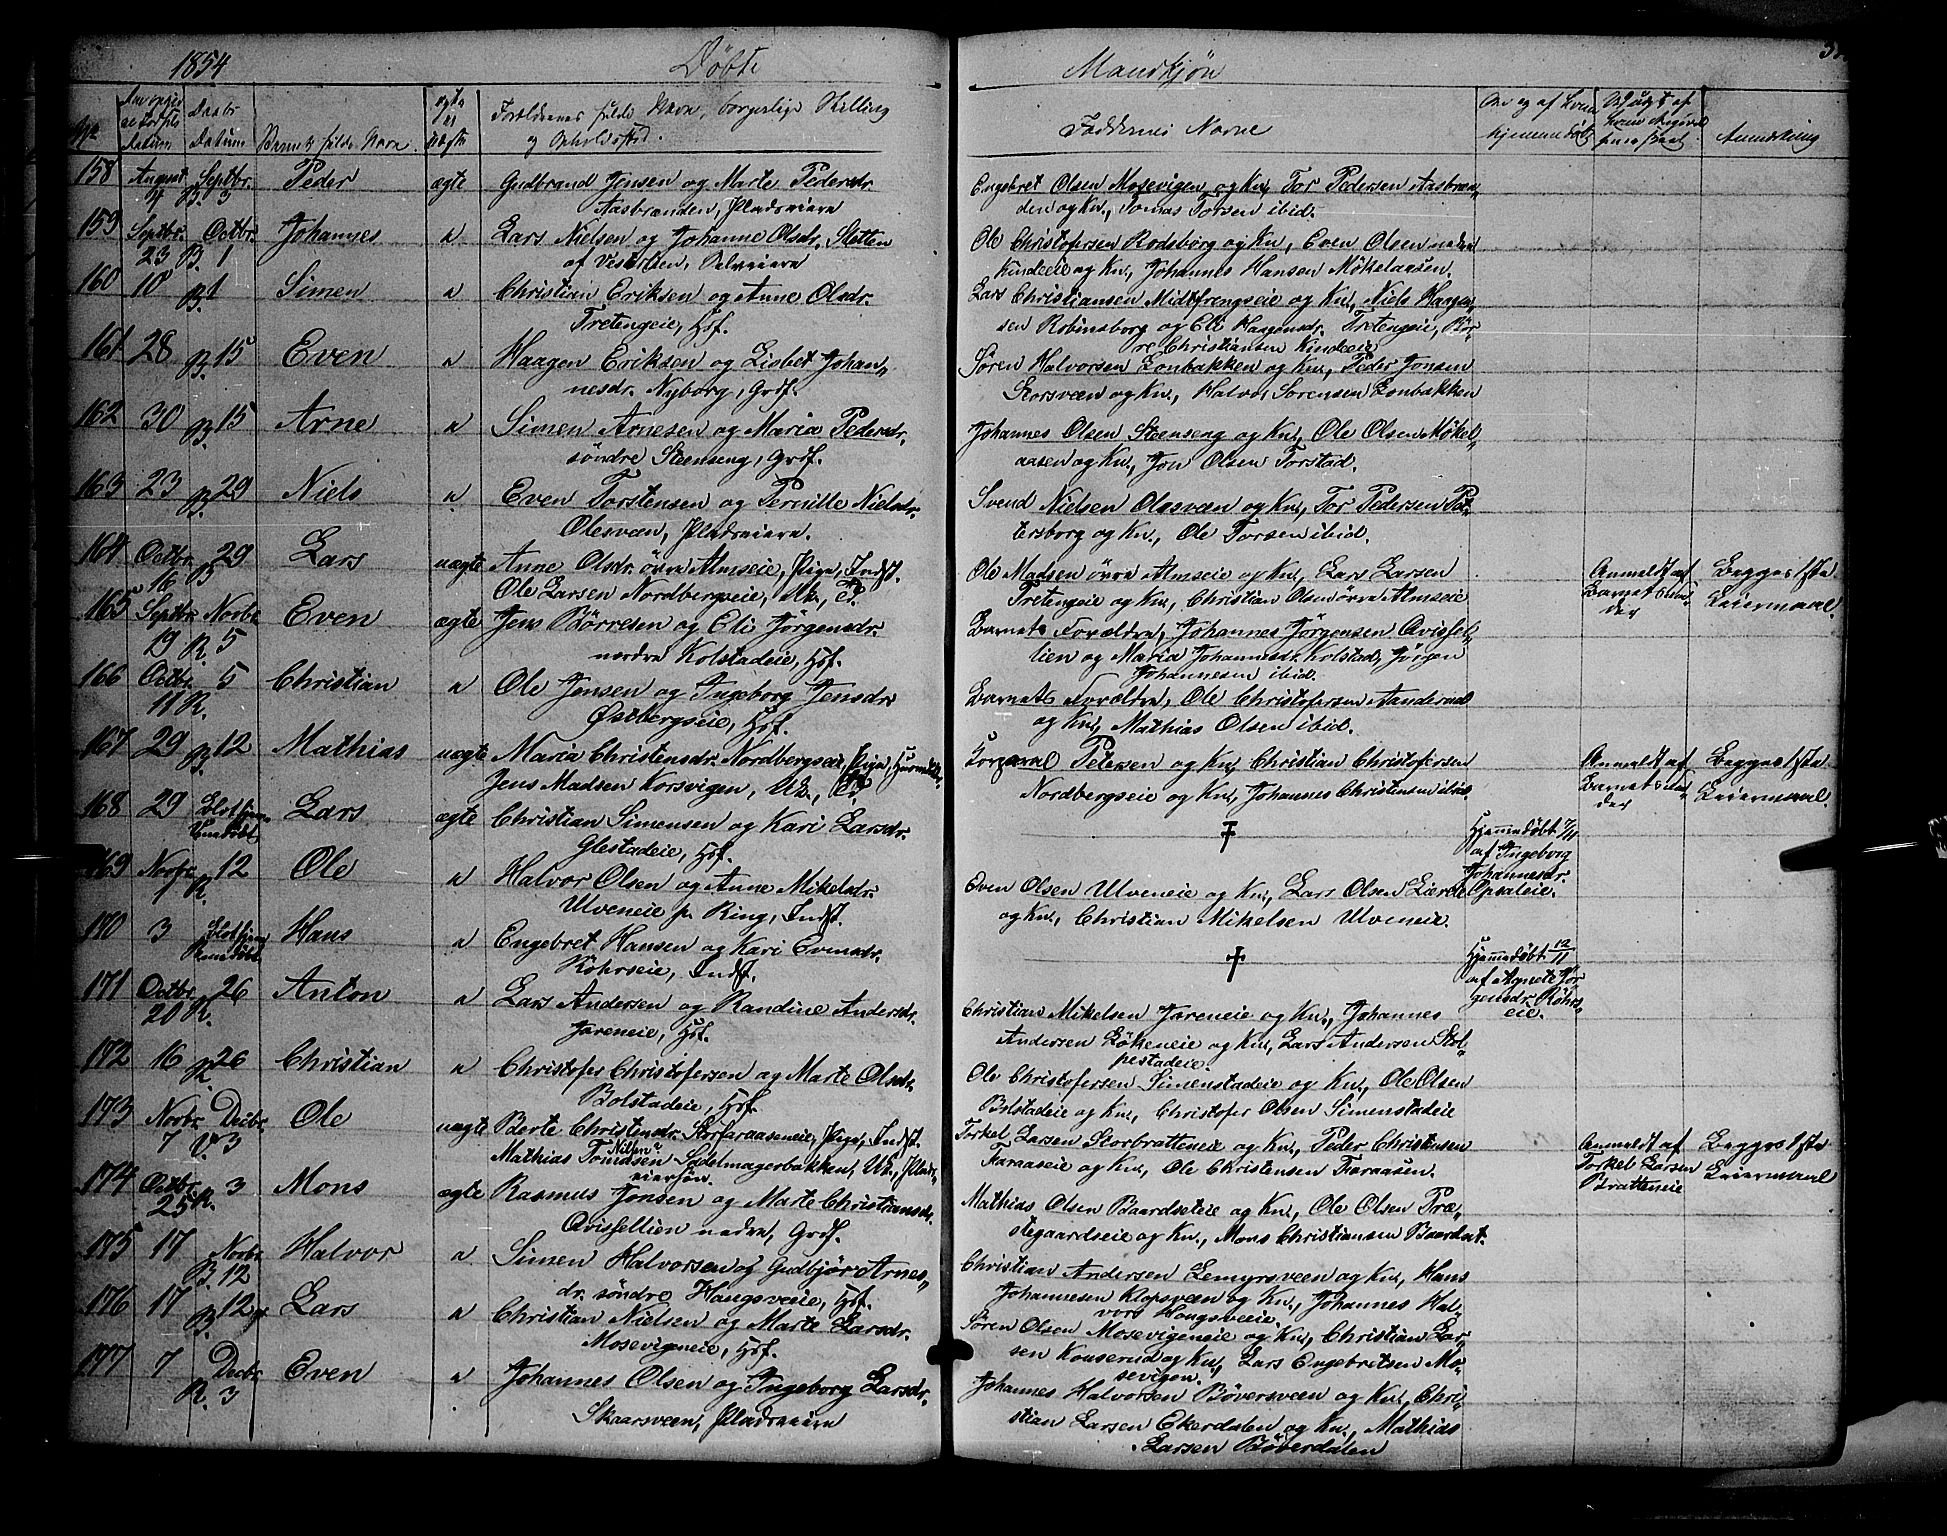 1854 Døbte Mandkjøn
Barnets fulde Navn.
Forældrenes fulde Navn, borgerlige Stilling
og Opholdssted.
Faddernes Navne
Anmærkning
158 August Septbr. Peder ægte Gudbrand Jensen og Marte Pedersdr.
B. 3 Aasbrænden, Pladseiere
Engebret Olsen Mosevigen og Kn., Tor Pedersen Aasbræn„
den og Kn., Tomas Torsen ibid.
159 Septbr. Octbr. Johannes „ Lars Nielsen og Johanne Olsdr. Sletten
23 B. 1 af Visterlien, Selveiere
Ole Christofersen Rodsborg og Kn., Even Olsen nedre
Kindeeie og Kn., Johannes Hansen Møkelaasen.
160 10 B. 1 Simen „ Christian Eriksen og Anne Olsdr.
Tretengeie, Hsf.
Lars Christiansen Midtfrengseie og Kn., Niels Haagen„
sen Robinsborg og Eli Haagensdr. Tretengeie, Bør„
re Christiansen Kindeeie
161 28 B. 15 Even „ Haagen Eriksen og Lisbet Johan„
nesdr. Nyborg, Grdf.
Søren Halvorsen Lonbakken og Kn., Peder Jonsen
Storsveen og Kn., Halvor Sørensen Lonbakken
162 30 B. 15 Arne „ Simen Arnesen og Maria Pedersdr.
søndre Steenseng, Grdf.
Johannes Olsen Steenseng og Kn., Ole Olsen Møkel„
aasen og Kn., Jon Olsen Torstad.
163 23 B. 29 Niels „ Even Torstensen og Pernille Nielsdr.
Olesveen, Pladseiere.
Svend Nielsen Olesveen og Kn., Tor Pedersen Pe„
tersborg og Kn., Ole Torsen ibid.
164 Octbr. 29 Lars uægte Anne Olsdr. øvre Almseie, Pige, Indst.
16 B. Ole Larsen Nordbergseie, Uk.,
Ole Madsen øvre Almseie og Kn., Lars Larsen
Tretengeie og Kn., Christian Olsen øvre Almseie
Anmeldt af
Barnets Mo„
der
Begges 1ste
Leiermaal.
165 Septbr. Novbr. Even ægte Jens Børresen og Eli Jørgensdr.
19 R. 5 nordre Kolstadeie, Hsf.
Barnets Forældre, Johannes Jørgensen Avissel„
lien og Maria Johannesdr. Kolstad, Jørgen
Johannesen ibid.
166 Octbr. 5 Christian „ Ole Jensen og Ingeborg Jensdr.
11 R. Østbergseie, Hsf.
Barnets Forældre, Ole Christofersen Aanderud
og Kn., Mathias Olsen ibid.
167 29 B. 12 Mathias uægte Maria Christensdr. Nordbergseie, Pige,
Jens Madsen Korsvigen, Uk.,
Peteren og Kn., Christian Christofersen
Nordbergseie og Kn., Johannes Christensen ibid.
Anmeldt af
Barnets Mo„
der
Begges 1ste
Leiermaal.
168 29 Blot hjem„ Lars ægte Christian Simensen og Kari Larsdr.
medøbt Glestadeie, Hsf.
†
Hjemmedøbt 7/11
af Ingeborg
Johannesdr.
Opsaleie.
169 Novbr. 12 Ole „ Halvor Olsen og Anne Mikelsdr.
7 R. Ulveneie p. Ring, Indst.
Even Olsen Ulveneie og Kn., Lars Olsen Lierdt
og Kn., Christian Mikelsen Ulveneie.
170 3 Blot hjem„ Hans „ Engebret Hansen og Kari Evensdr.
medøbt. Røhrseie, Indst.
†
Hjemmedøbt 12/11
af Agnete Jør„
gensdr. Røhrs„
eie.
171 Octbr. 26 Anton „ Lars Andersen og Randine Andersdr.
20 R. Jareneie, Hsf.
Christian Mikelsen Jareneie og Kn., Johannes
Andersen Løkeneie og Kn., Lars Andersen Stol„
pestadeie.
172 16 R. 26 Christian „ Christofer Christofersen og Marte Olsdr.
Bolstadeie, Hsf.
Ole Christofersen Simenstadeie og Kn., Ole Olsen
Bolstadeie og Kn., Christofer Olsen Simenstadeie
173 Novbr. Decbr. Ole uægte Berte Christensdr. Storfaraaseneie, Pige, Indst.
7 3 Mathias Tomassen Nilsen Sadelmagerbakken, Uk., Plads„
eiersøn.
Torkel Larsen Storbratteneie og Kn., Peder Christensen
Faraaseie og Kn., Ole Christensen Faraasen.
Anmeldt af
Torkel Larsen
Bratteneie
Begges 1ste
Leiermaal
174 Octbr. 3 Mons ægte Rasmus Jonsen og Marte Christiansdr.
25 R. Avissellien nedre, Grdf.
Mathias Olsen Baardseteie og Kn., Ole Olsen Præ„
stegaardseie og Kn., Mons Christiansen Baardset.
175 17 Novbr. Halvor „ Simen Halvorsen og Gudbjør Arnes„
B. 12 dr. søndre Hongsveeie, Hsf.
Christian Andersen Lemyrsveen og Kn., Hans
Johannesen Klopsveen og Kn., Johannes Hal„
vors. Hongsveeie.
176 17 B. 12 Lars „ Christian Nielsen og Marte Larsdr.
Mosevigeneie, Hsf.
Søren Olsen Mosevigeneie og Kn., Christian Lar„
sen Konserud og Kn., Lars Engebretsen Mo„
sevigen.
177 7 Decbr. Even „ Johannes Olsen og Ingeborg Larsdr.
R. 3 Skaarsveen, Pladseiere
Johannes Halvorsen Bøversveen og Kn., Chri„
stian Larsen Ekerdalen og Kn., Mathias
Larsen Bøverdalen